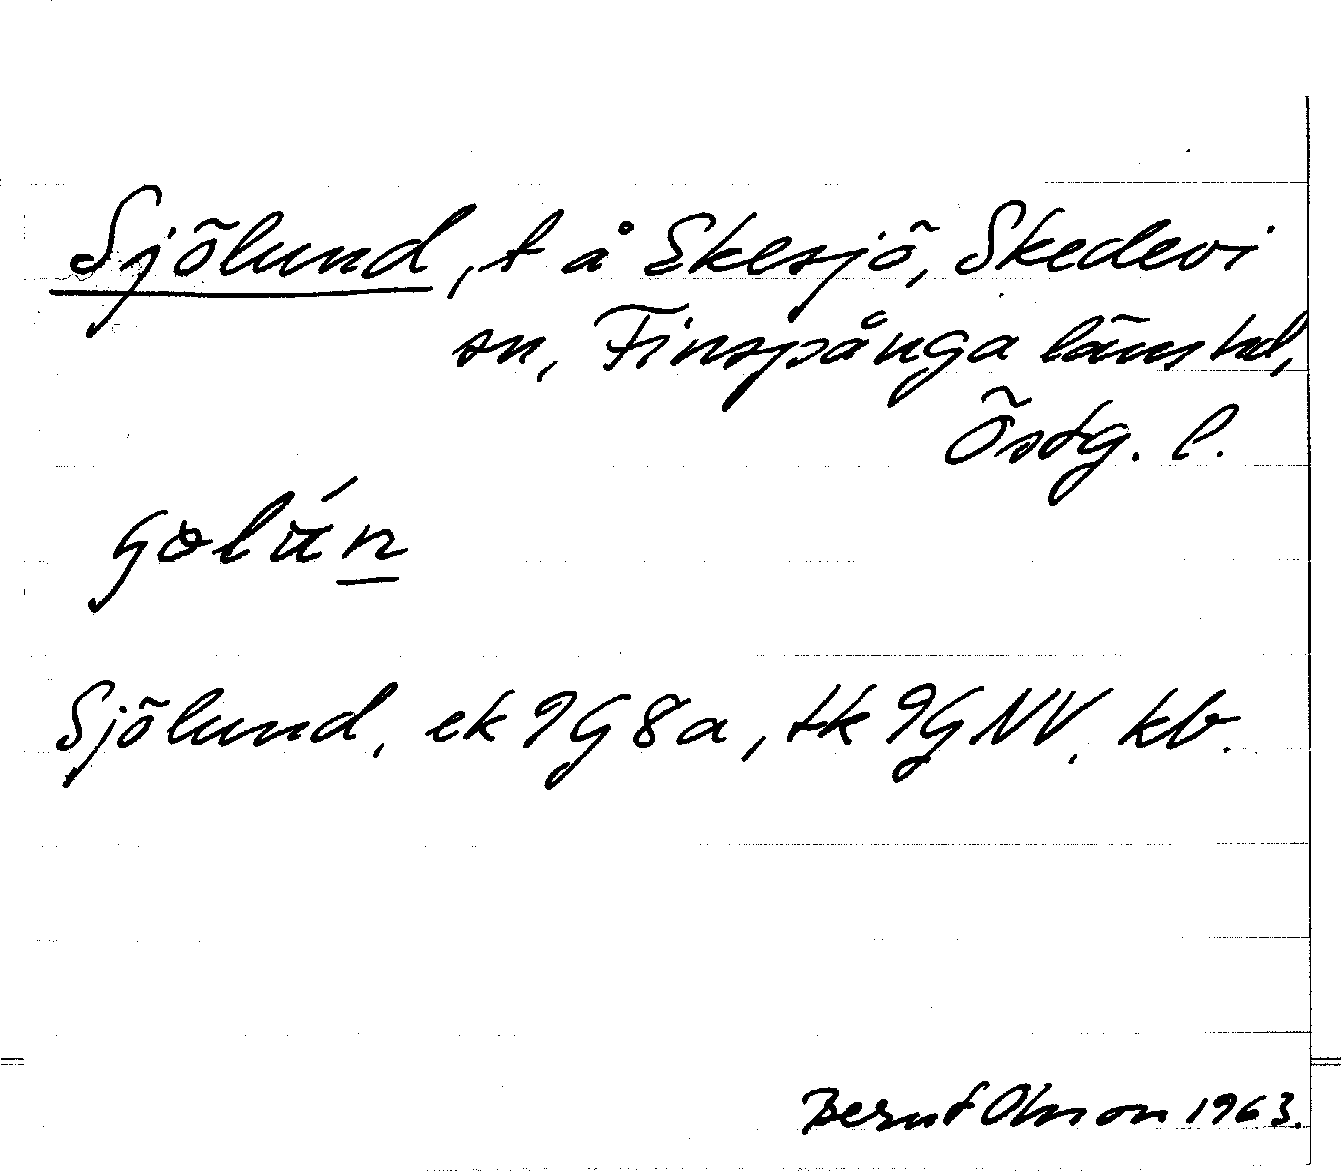 Sjölund, t å Ekesjö, Skedevi
sn, Finspånga läns hd,
Östg. l.
Sjölund, ek 9G8a, tk 9GNV, kb.
Bernt Olsson 1963.